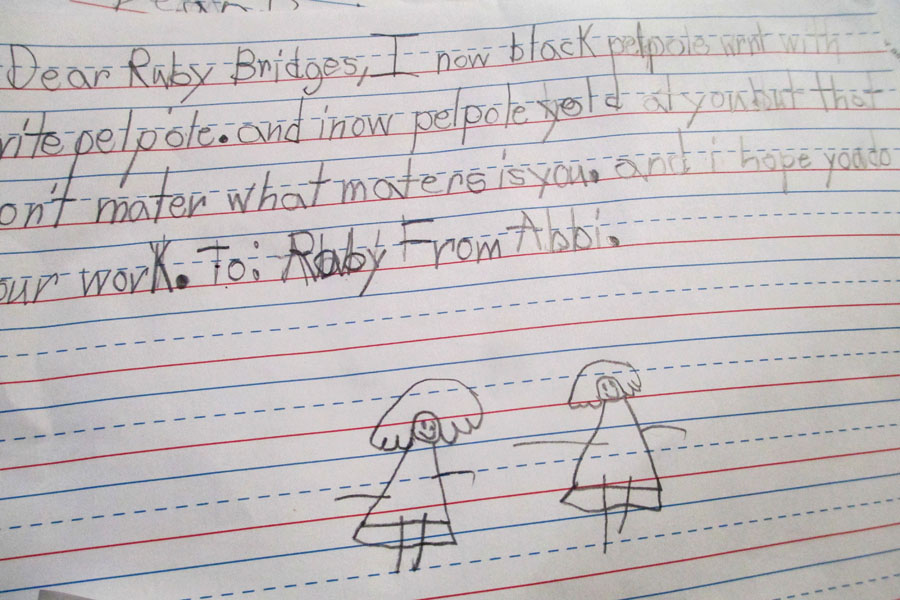 Dear Ruby Bridges, I now black pelpole wint with
rite pelpole. and i now pelpole yeld at you but that
ont mater what maters is you. and i hope you do
our work. To: Ruby From Abbi.